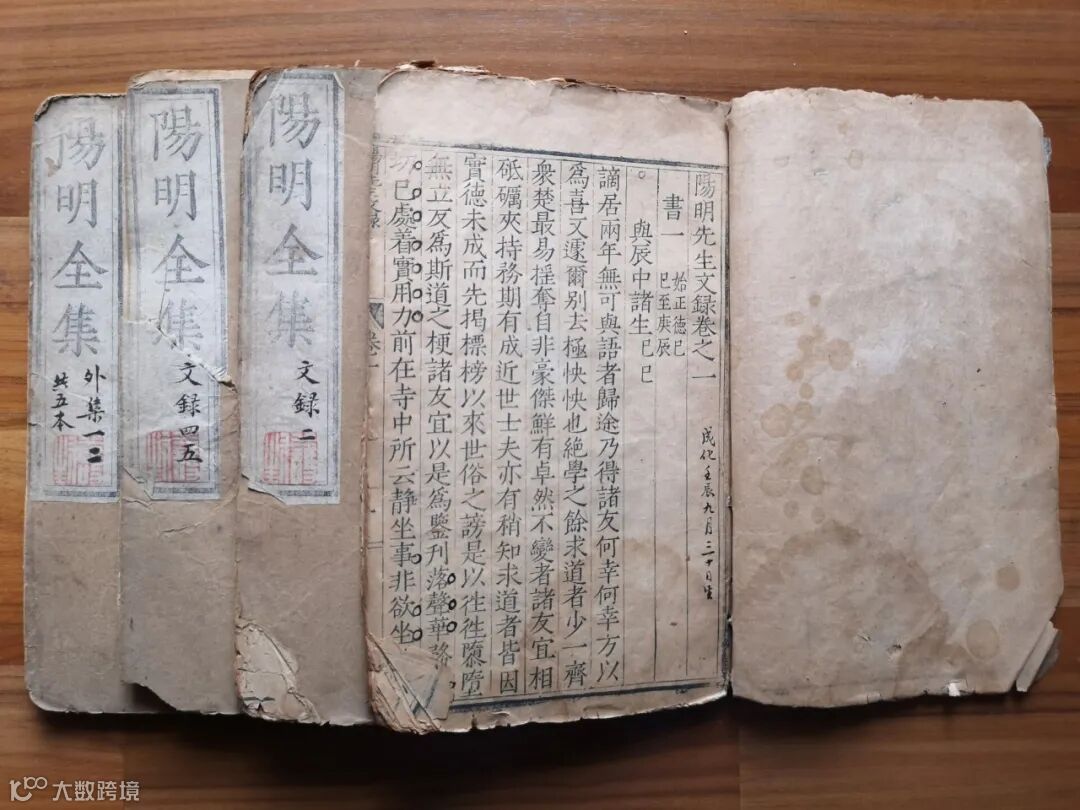 陽明先生文録卷之一
成化壬辰九月三十日生
書一
始正德己
巳至庚辰
與辰中諸生 己巳
謫居兩年無可與語者歸途乃得諸友何幸何幸方以
爲喜又遽爾别去極怏怏也絶學之餘求道者少一齊
衆楚最易摇奪自非豪傑鮮有卓然不變者諸友宜相
砥礪夾持務期有成近世士夫亦有稍知求道者皆因
實德未成而先揭標榜以來世俗之謗是以徃徃隳墮
無立反爲斯道之梗諸友宜以是爲鑒刋落聲華務
切己處着實用力前在寺中所云静坐事非欲坐
陽明全集
文録二
陽明全集
文録四五
陽明全集
外集一二
共五本
大数跨境